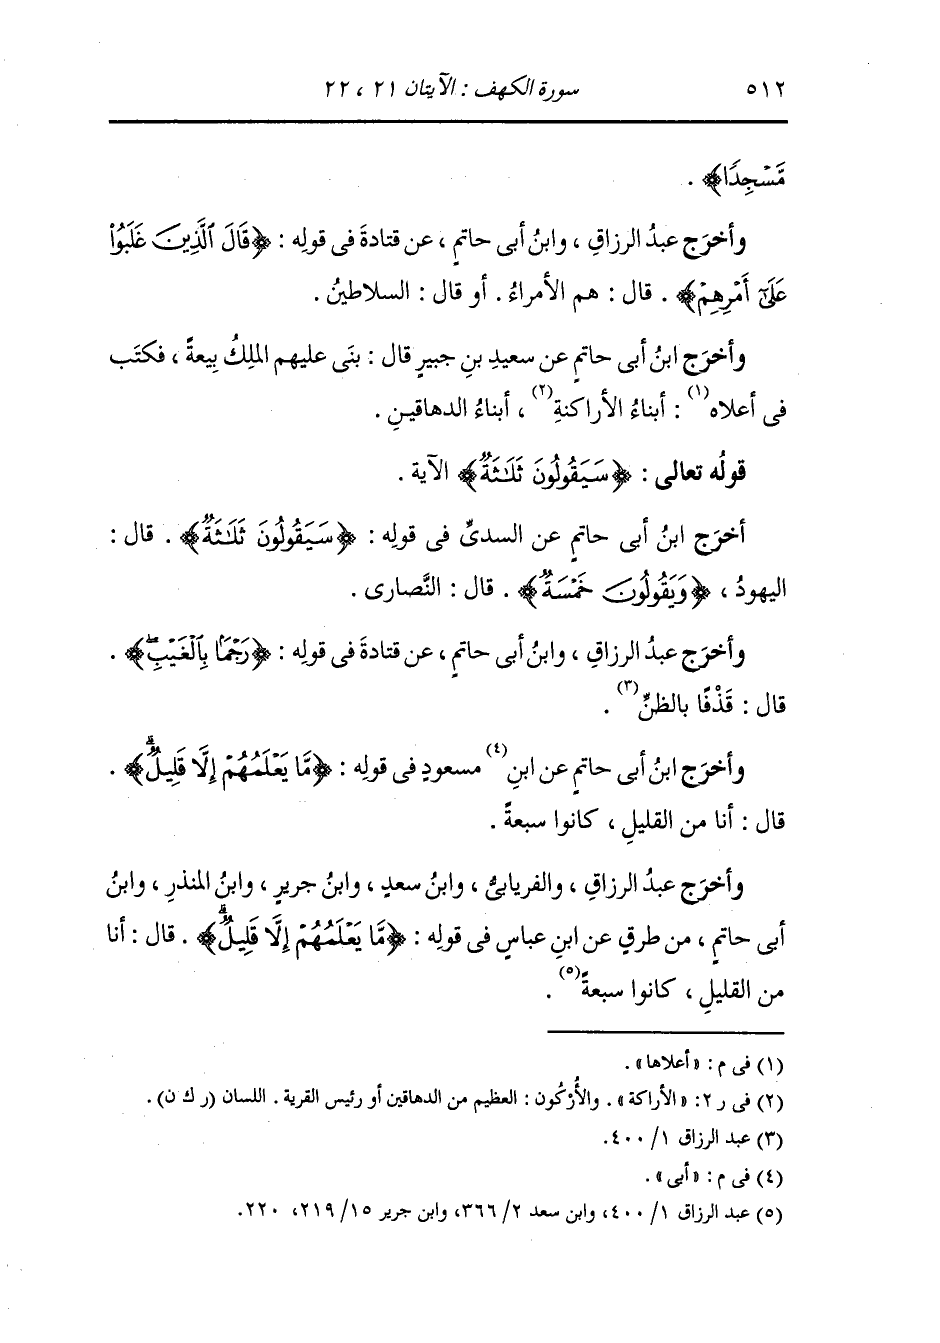 ٥١٢ سورة الكهف : الآيتان ٢١ ، ٢٢
مَّسْجِدًا﴾ .
وأخرَج عبدُ الرزاقِ ، وابنُ أبى حاتمٍ ، عن قتادةَ فى قولِه : ﴿قَالَ ٱلَّذِينَ غَلَبُوا۟
عَلَىٰٓ أَمْرِهِمْ﴾ . قال : هم الأمراءُ . أو قال : السلاطينُ .
وأخرَج ابنُ أبى حاتمٍ عن سعيدِ بنِ جبيرٍ قال : بنَى عليهم الملِكُ بِيعةً ، فكتَب
فى أعلاه(١) : أبناءُ الأراكنةِ(٢) ، أبناءُ الدهاقينِ .
قولُه تعالى : ﴿سَيَقُولُونَ ثَلَـٰثَةٌ﴾ الآية .
أخرَج ابنُ أبى حاتمٍ عن السدىِّ فى قولِه : ﴿سَيَقُولُونَ ثَلَـٰثَةٌ﴾ . قال :
اليهودُ ، ﴿وَيَقُولُونَ خَمْسَةٌ﴾ . قال : النَّصارى .
وأخرَج عبدُ الرزاقِ ، وابنُ أبى حاتمٍ ، عن قتادةَ فى قولِه : ﴿رَجْمًۢا بِٱلْغَيْبِ ۖ﴾ .
قال : قَذْفًا بالظنِّ(٣) .
وأخرَج ابنُ أبى حاتمٍ عن ابنِ(٤) مسعودٍ فى قولِه : ﴿مَّا يَعْلَمُهُمْ إِلَّا قَلِيلٌ ۗ﴾ .
قال : أنا من القليلِ ، كانوا سبعةً .
وأخرَج عبدُ الرزاقِ ، والفريابىُّ ، وابنُ سعدٍ ، وابنُ جريرٍ ، وابنُ المنذرِ ، وابنُ
أبى حاتمٍ ، من طرقٍ عن ابنِ عباسٍ فى قولِه : ﴿مَّا يَعْلَمُهُمْ إِلَّا قَلِيلٌ ۗ﴾ . قال : أنا
من القليلِ ، كانوا سبعةً(٥) .
(١) فى م : «أعلاها» .
(٢) فى ر ٢: «الأراكة» . والأُرْكُون : العظيم من الدهاقين أو رئيس القرية . اللسان (ر ك ن) .
(٣) عبد الرزاق ١/ ٤٠٠.
(٤) فى م : «أبى» .
(٥) عبد الرزاق ١/ ٤٠٠، وابن سعد ٢/ ٣٦٦، وابن جرير ١٥/ ٢١٩، ٢٢٠.